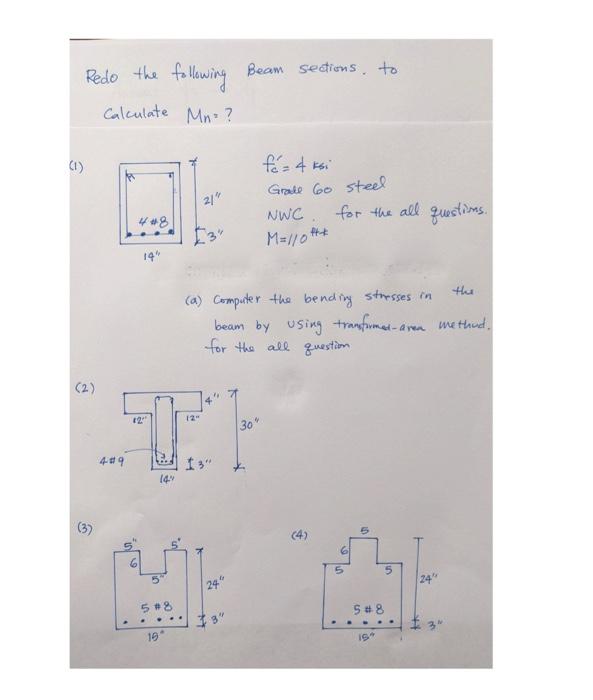 Redo the following Beam sections. to
Calculate Mn=?
(1)
fc'=4 ksi
Grade 60 steel
NWC. for the all questions.
M=110 ft-k
21"
4#8
3"
14"
(a) Computer the bending stresses in the
beam by using transformed-area method.
for the all question
(2)
4"
12"
12"
30"
4#9
3"
14"
(3)
5"
5"
6
5"
24"
5#8
3"
15"
(4)
5
6
5
5
24"
5#8
3"
15"